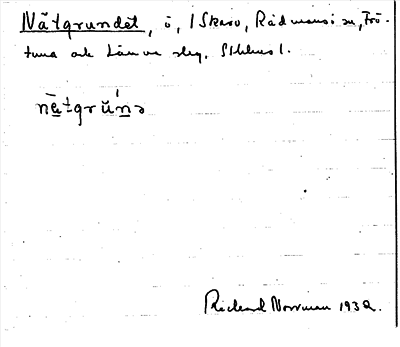 Nätgrundet, ö, i Skarv, Rådmansö sn, Frö-
tuna och Länna slg, Sthlms l.
nä̱tgrùṉə
Richard Norrman 1932.